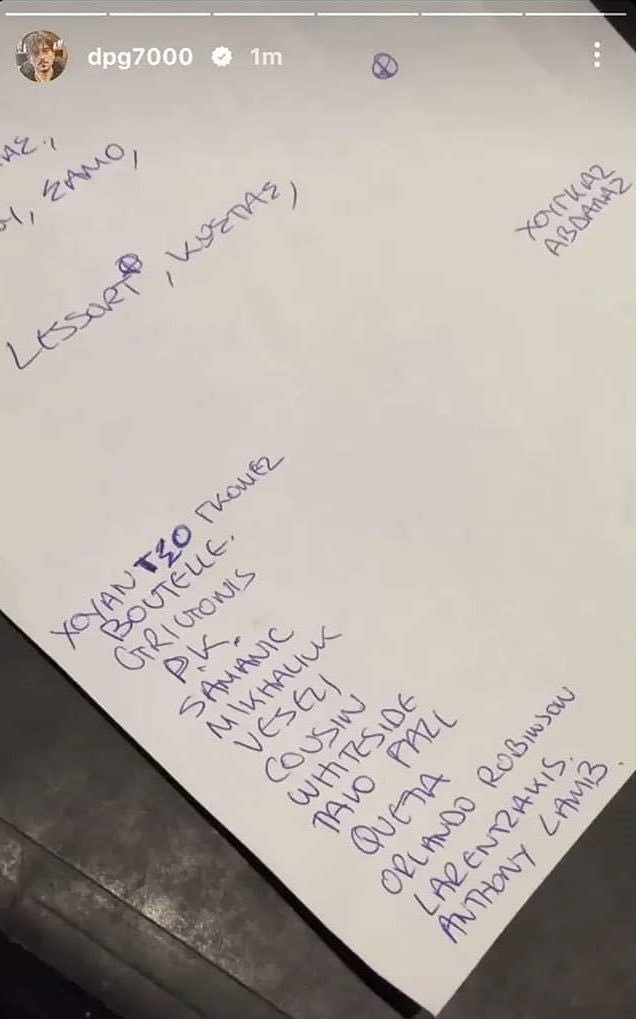 dpg7000 1m
ΣΑΜΟ,
LESSORT, ΚΩΣΤΑΣ,
ΧΟΥΓΚΑΖ
ΑΒΔΑΛΑΣ
ΧΟΥΑΝΤΣΟ ΓΚΟΜΕΖ
BOUTELLE.
GRIGONIS
P.K.
SAMANIC
MIKHAILIUK
VESELI
COUSIN
WHITESIDE
TAVO PAZL
QUETA
ORLANDO ROBINSON
LARENTZAKIS.
ANTHONY LAMB.